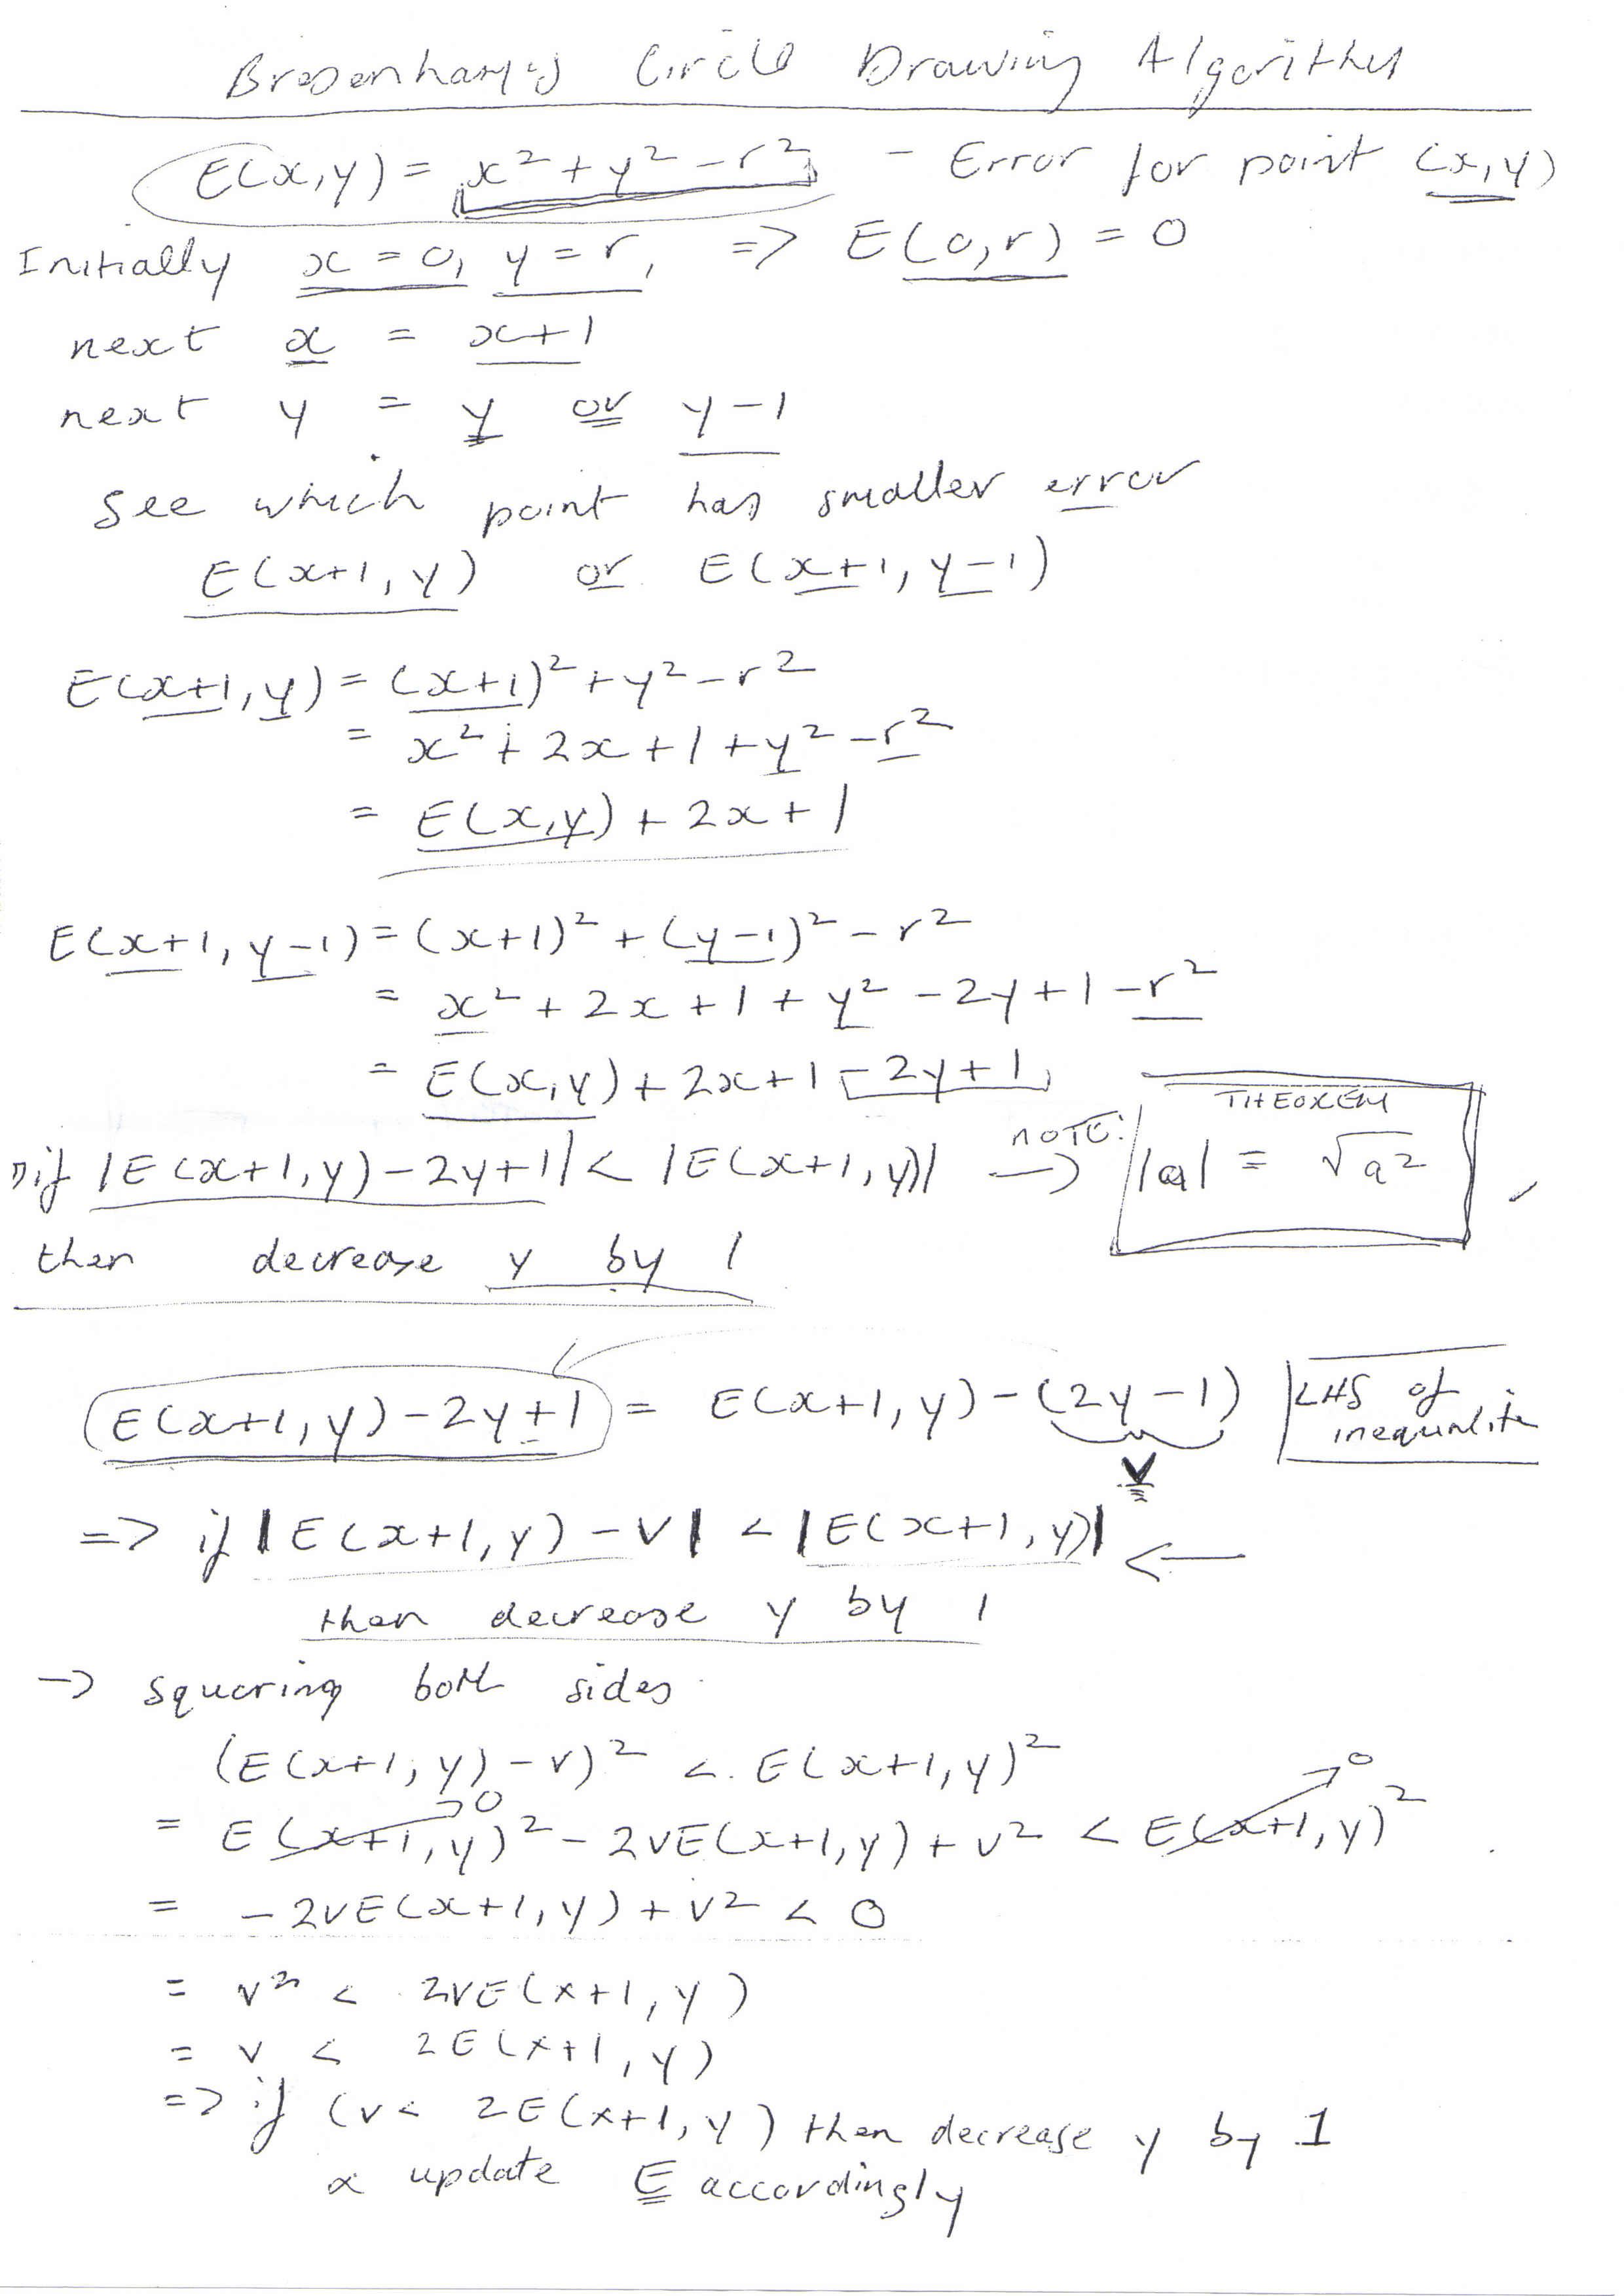 Bresenham's Circle Drawing Algorithm
E(x,y) = x² + y² - r² - Error for point (x,y)
Initially x = 0, y = r, => E(0,r) = 0
next x = x+1
next y = y or y-1
see which point has smaller error
E(x+1, y) or E(x+1, y-1)
E(x+1, y) = (x+1)² + y² - r²
= x² + 2x + 1 + y² - r²
= E(x,y) + 2x + 1
E(x+1, y-1) = (x+1)² + (y-1)² - r²
= x² + 2x + 1 + y² - 2y + 1 - r²
= E(x,y) + 2x + 1 - 2y + 1
if |E(x+1, y) - 2y + 1| < |E(x+1, y)| → NOTE: THEOREM |a| = √a²
then decrease y by 1
E(x+1, y) - 2y + 1 = E(x+1, y) - (2y - 1) LHS of
inequalit
v
=> if |E(x+1, y) - v| < |E(x+1, y)| ←
then decrease y by 1
→ squaring both sides
(E(x+1, y) - v)² < E(x+1, y)²
0 0
= E(x+1, y)² - 2vE(x+1, y) + v² < E(x+1, y)²
= - 2vE(x+1, y) + v² < 0
= v² < 2vE(x+1, y)
= v < 2E(x+1, y)
=> if (v < 2E(x+1, y) then decrease y by 1
& update E accordingly